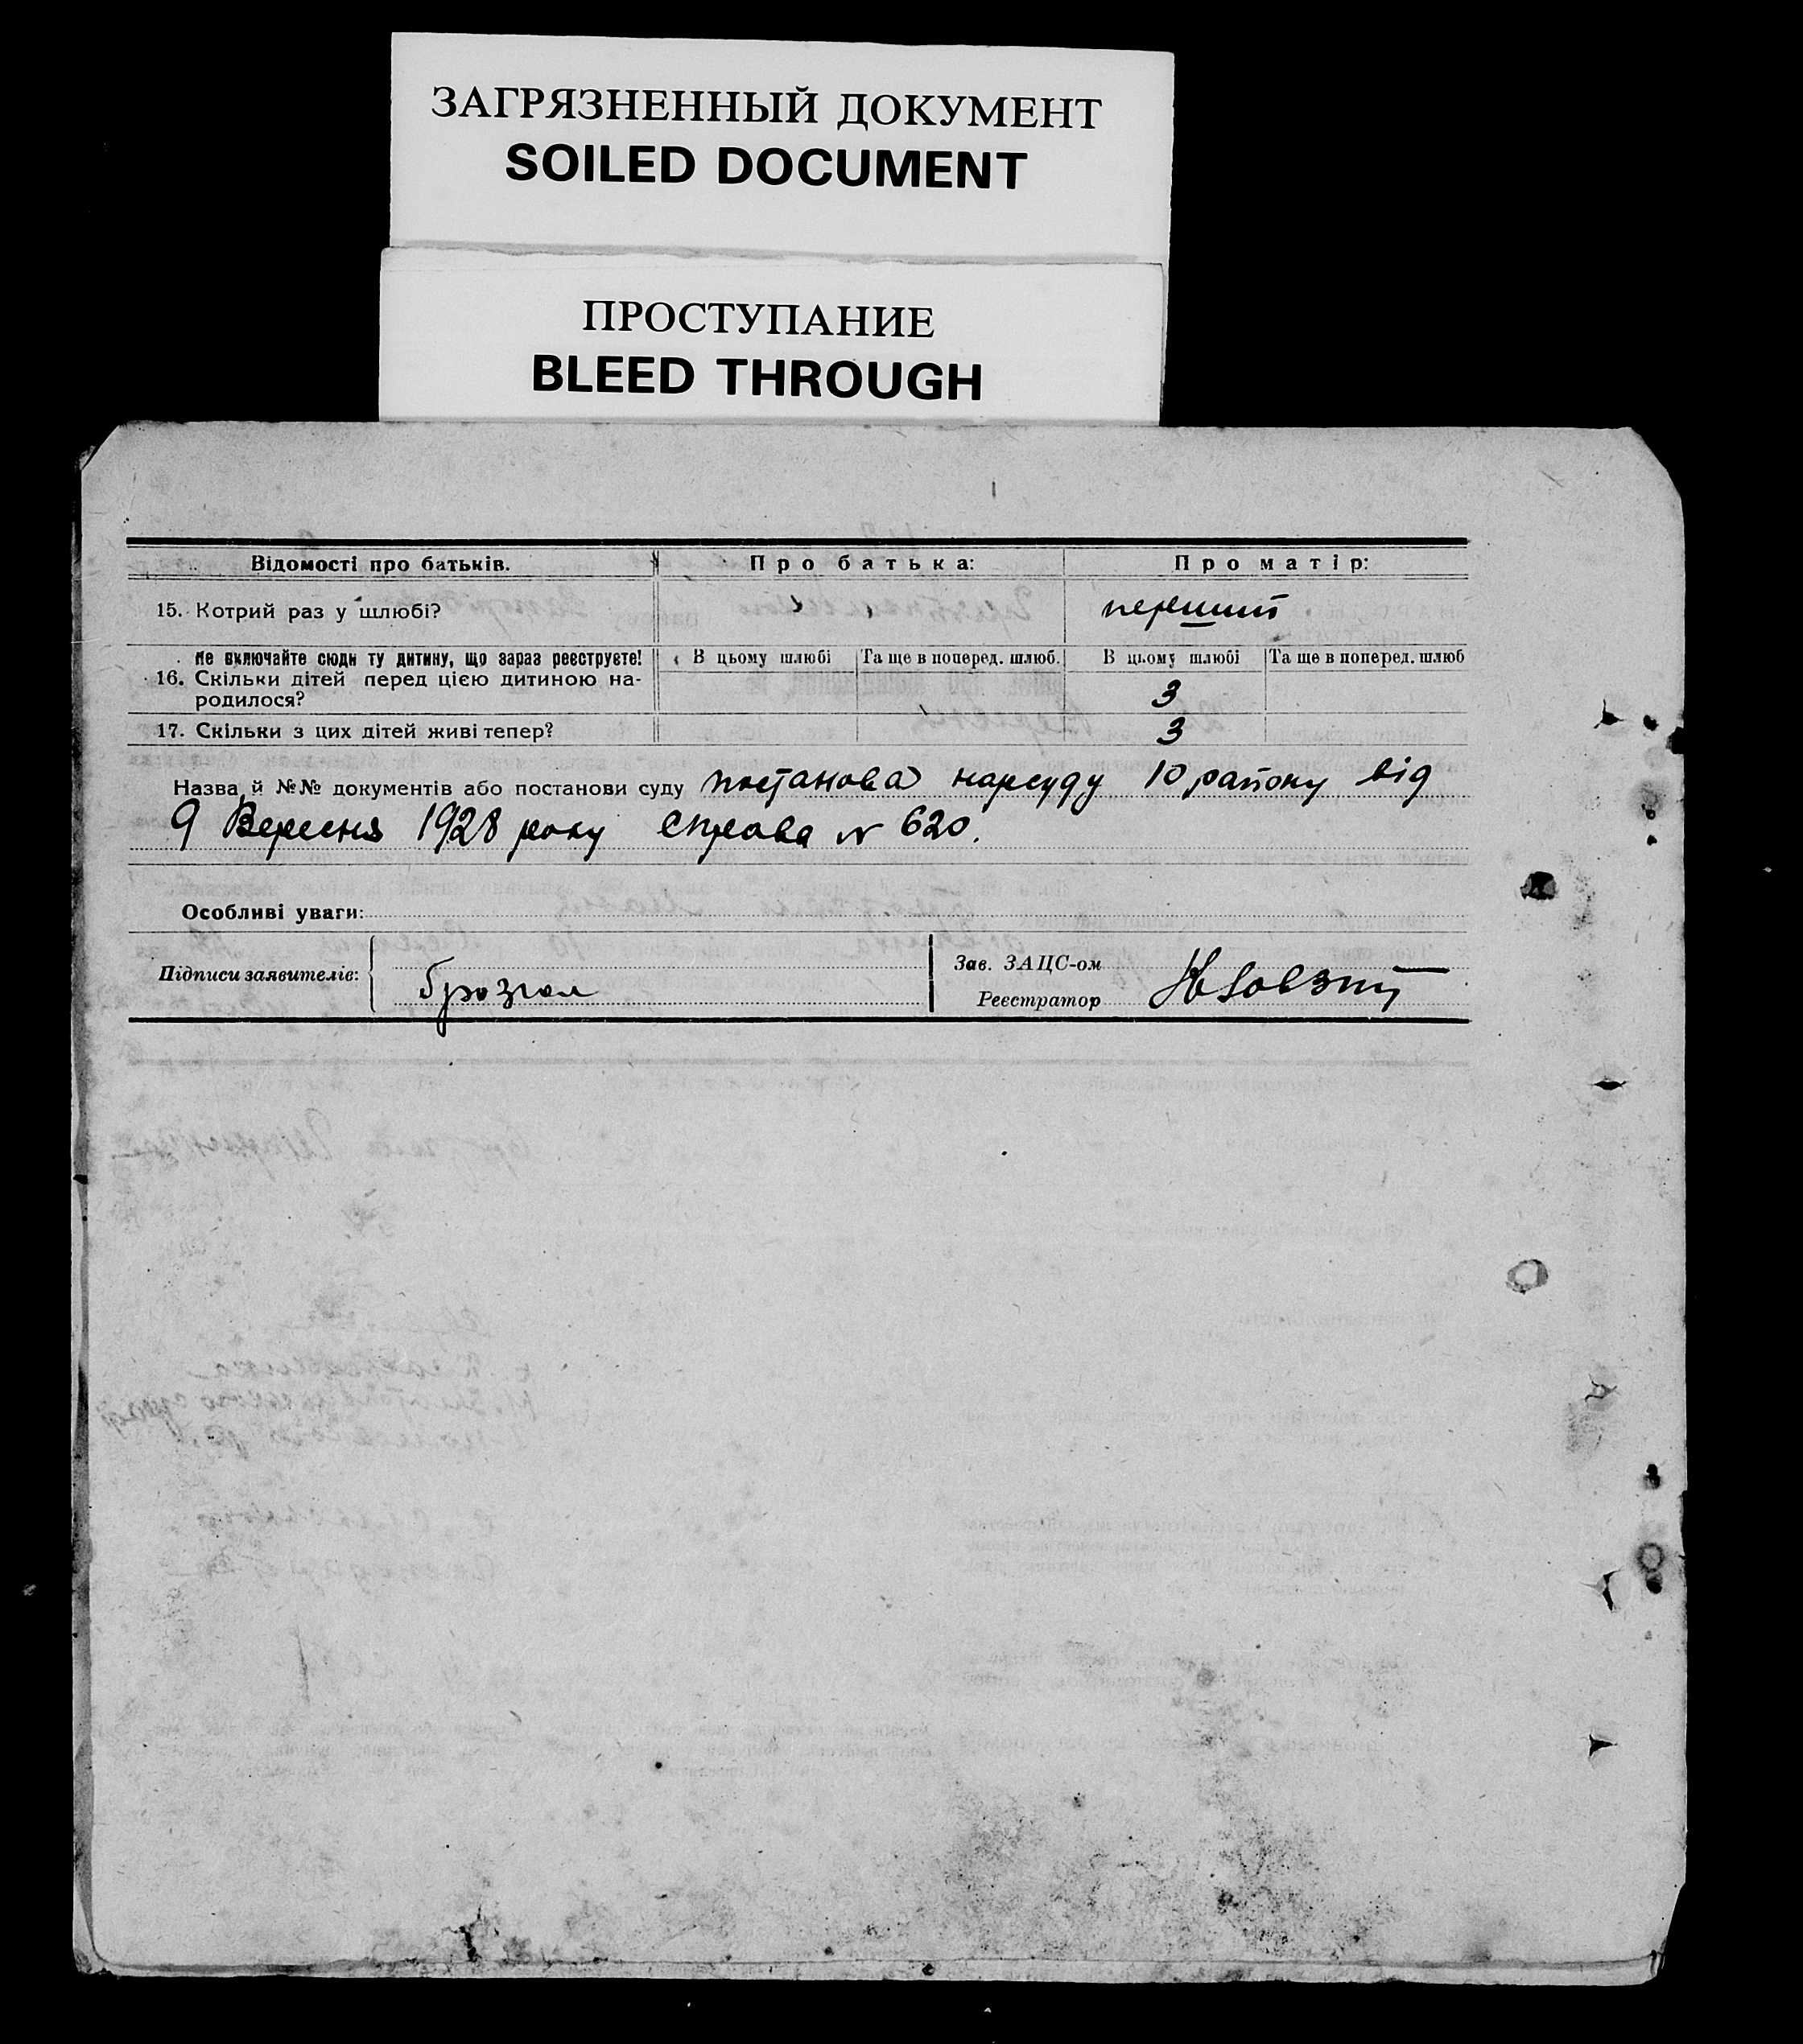 ЗАГРЯЗНЕННЫЙ ДОКУМЕНТ
SOILED DOCUMENT
ПРОСТУПАНИЕ
BLEED THROUGH
Відомості про батьків. Про батька: Про матір:
15. Котрий раз у шлюбі? перший
Не включайте сюди ту дитину, що зараз реєструєте! В цьому шлюбі Та ще в поперед. шлюб. В цьому шлюбі Та ще в поперед. шлюб
16. Скільки дітей перед цією дитиною на-
родилося? 3
17. Скільки з цих дітей живі тепер? 3
Назва й №№ документів або постанови суду постанова нарсуду 10 району від
9 Вересня 1928 року справа № 620.
Особливі уваги:
Підписи заявителів: Зав. ЗАЦС-ом
Реєстратор